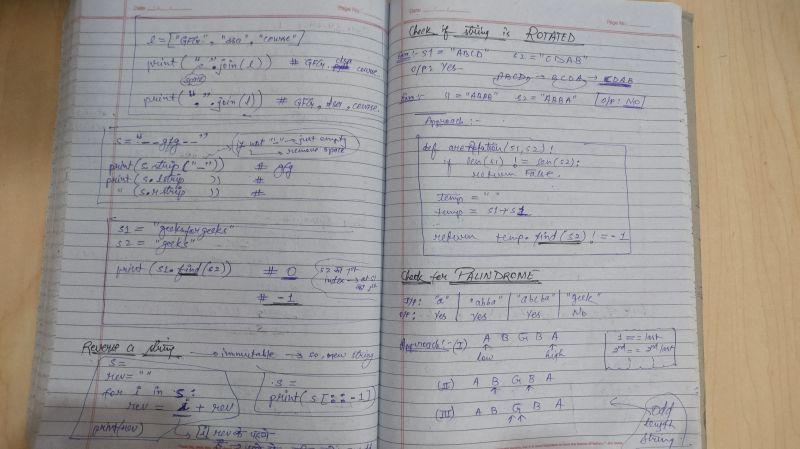 l = ["GFG", "dsa", "course"]
print(" ".join(l)) # GFG dsa course
space
print(",".join(l)) # GFG, dsa, course.
s = "--gfg--"
if not "-" → just empty
remove space
print(s.strip("-")) # gfg
print(s.lstrip )) #
" (s.rstrip )) #
s1 = "geeksforgeeks"
s2 = "geeks"
print (s1.find(s2)) # 0
# -1
Reverse a string → immutable → so, new string
s =
rev = ""
for i in s:
rev = i + rev
print(rev)
s =
print(s[::-1]
Date
Page No.
Check if string is ROTATED
s1 = "ABCD" s2 = "CDAB"
O/P: Yes
ABCD → BCDA → CDAB
"ABBA" O/P: NO
Approach:-
def areRotation(s1,s2):
if len(s1) != len(s2):
return False.
temp = ""
temp = s1+s1
return temp.find(s2) != -1
Check for PALINDROME
I/P: "a" | "abba" | "abcba" | "geek"
O/P: Yes | Yes | Yes | No
Approach:- (I) A B G B A
low high
1 == last
3rd == 3rd last
(II) A B G B A
(III) A B G B A
odd
length
string